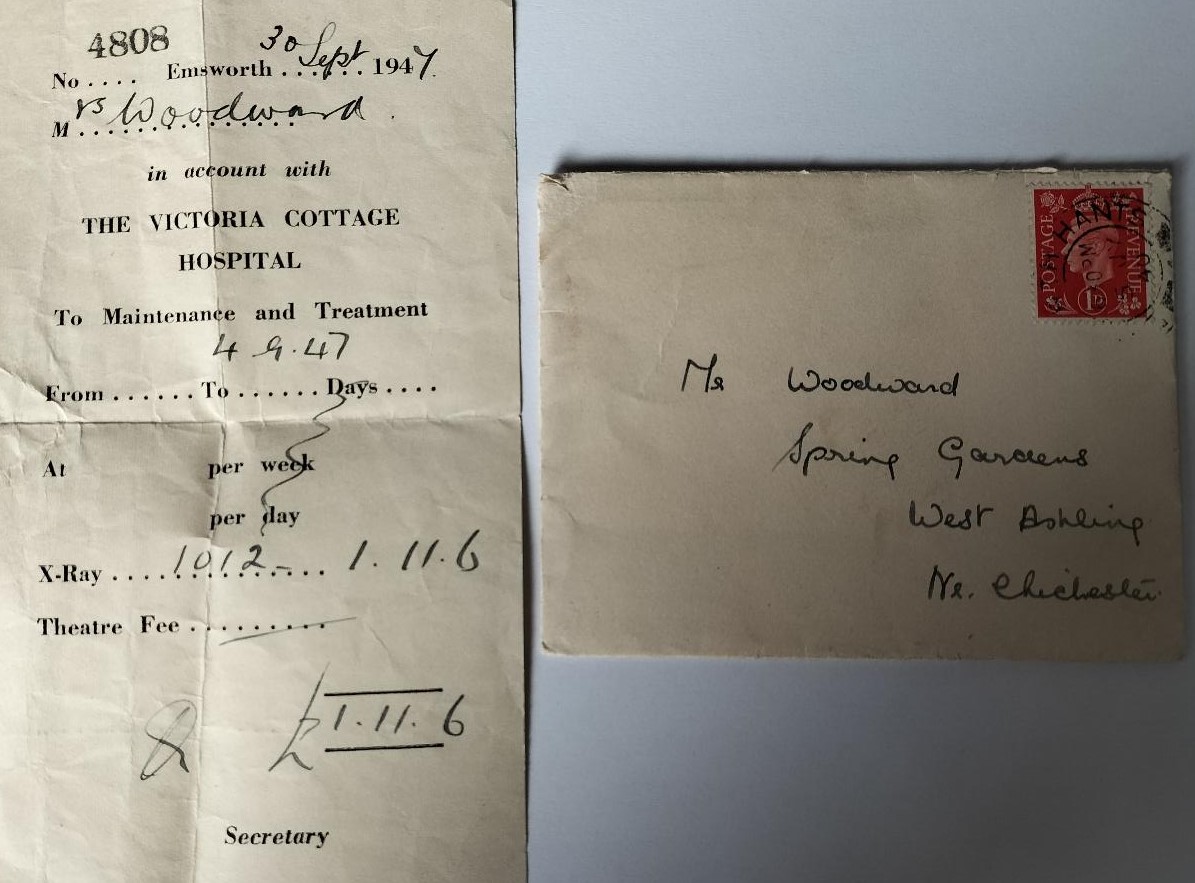 4808
No .... Emsworth 30 Sept 1947.
Mrs Woodward
in account with
THE VICTORIA COTTAGE
HOSPITAL
To Maintenance and Treatment
4 9.47
From ...... To ...... Days ....
At per week
per day
X-Ray 1012 - 1.11.6
Theatre Fee .........
£1.11.6
Secretary
POSTAGE REVENUE
1D
HANTS
Mr Woodward
Spring Gardens
West Ashling
Nr. Chichester